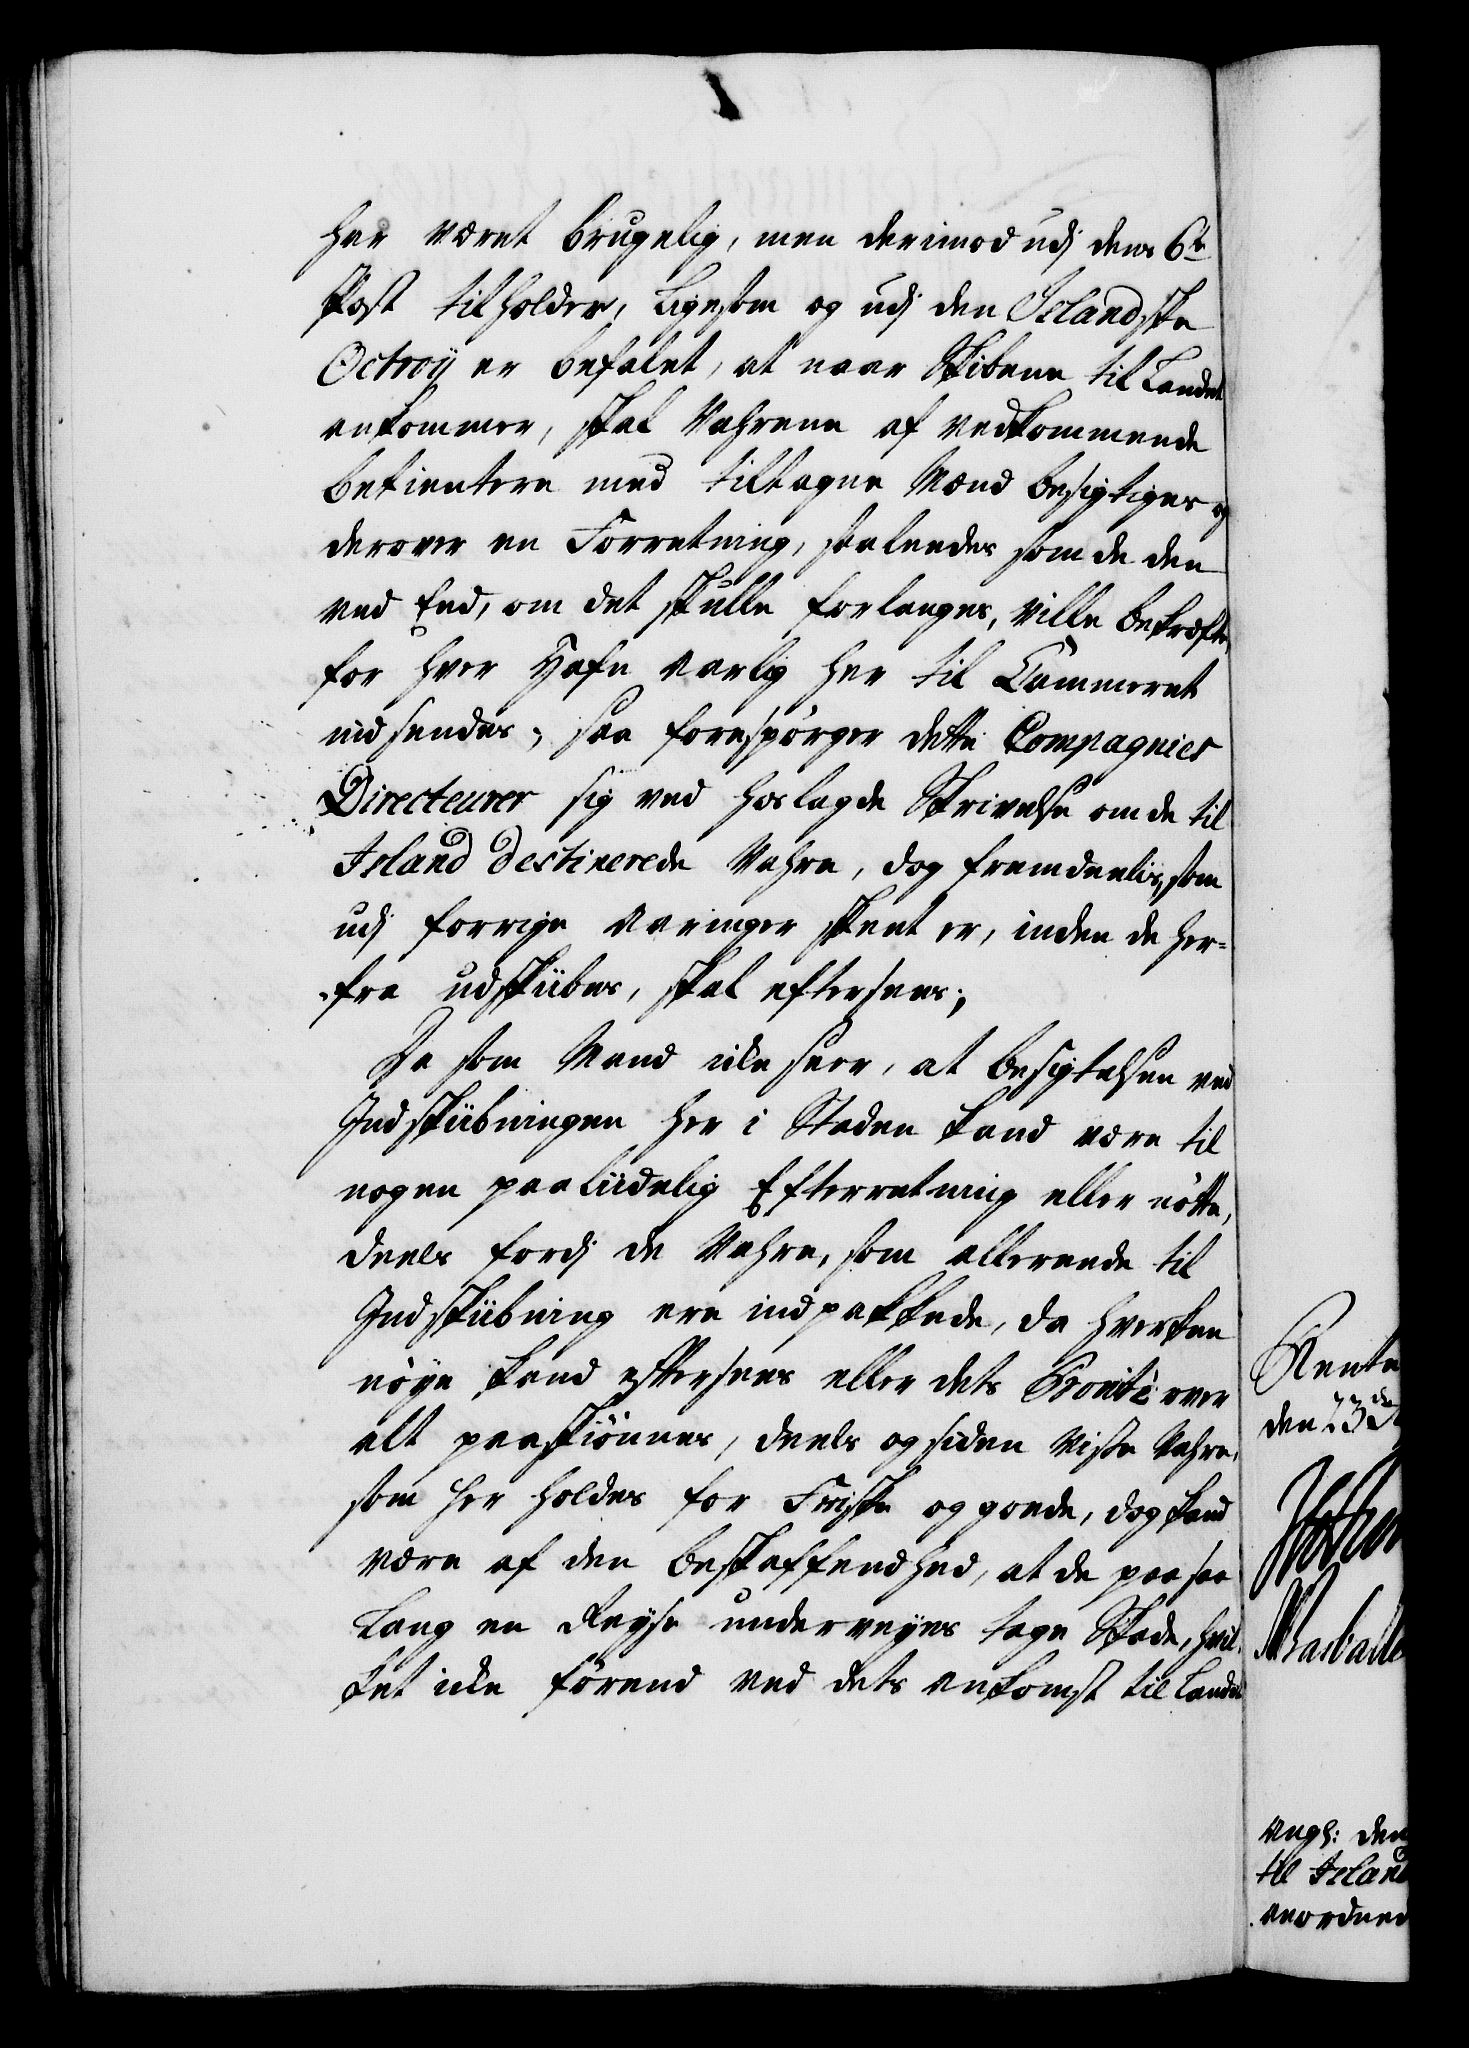 har været brugelig, men derimod udj dens 6te
Post tilholder, ligesom og udj den Islandske
Octroy er befalet, at naar Skibene til Landet
ankommer, skal Vahrene af vedkommende
betientere med tiltagne Mænd besigtiges og
derover en Forretning, saaleedes som de den
ved Eed, om det skulle forlanges, ville bekræfte,
for hver Hafn aarlig her til Cammeret
indsendes; saa forespörger dette Compagnies
Directeurer sig ved hoslagde Skrivelse om de til
Island destinerede Vahre, dog fremdeelis, som
udj forrige Aaringer skeet er, inden de her-
fra udskiibes, skal eftersees;
Da som Mand icke seer, at besigtelsen ved
Indskiibningen her i Staden kand være til
nogen paaliidelig Efterretning eller nötte,
deels fordj de Vahre, som allereede til
Indskiibning ere indpakkede, da hverken
nöye kand eftersees eller dets Bonité over
alt paaskiönnes, deels og siden visse Vahre,
som her holdes for Friske og goede, dog kand
være af den beskaffendhed, at de paa saa
lang en Reyse underveyes tage Skade, hvil-
ket icke förend ved dets ankomst til Landet
Rente
den 23de
til Island